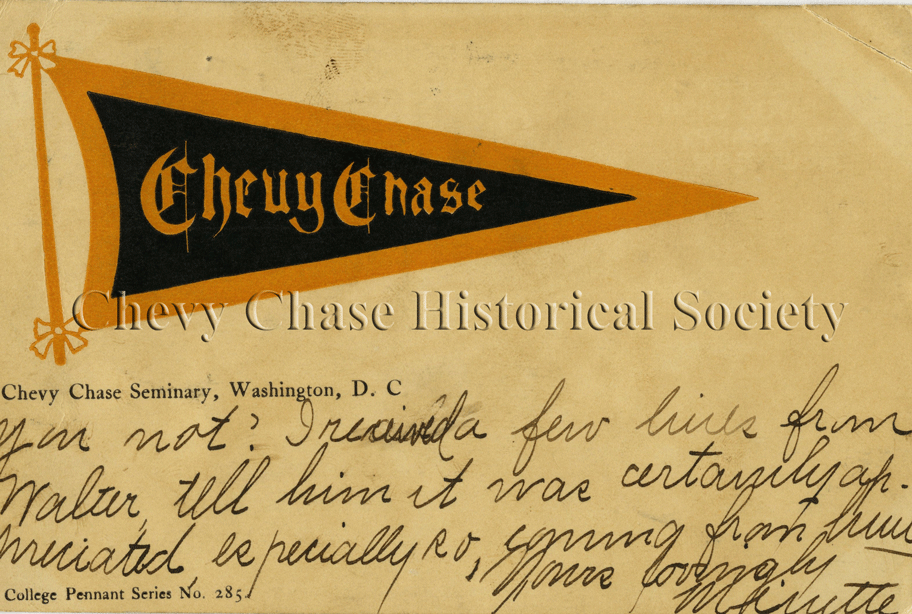 Chevy Chase
Chevy Chase Historical Society
Chevy Chase Seminary, Washington, D. C
you not? I received a few lines from
Walter, tell him it was certainly ap-
preciated, especially so, coming from him
Yours lovingly
College Pennant Series No. 285.